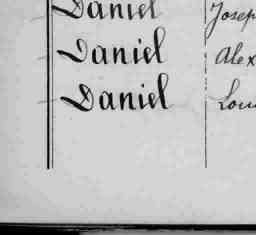 Daniel Joseph
Daniel Alex
Daniel Lou